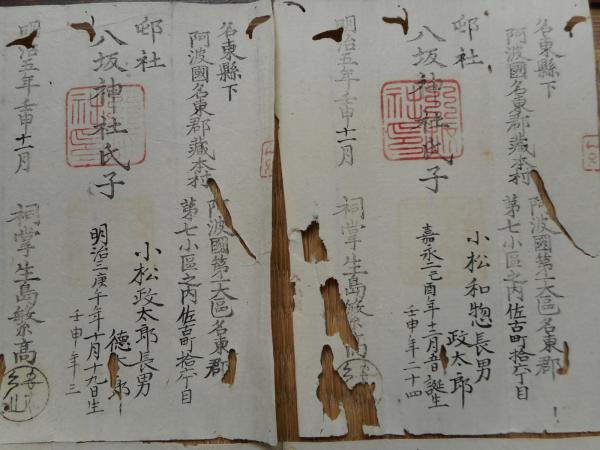 名東縣下
阿波國名東郡藏本村
邸社
八坂神社氏子
明治五年壬申十一月
阿波國第一大區名東郡
第七小區之内佐古町拾丁目
小松和惣長男
政太郎
嘉永二己酉年十二月
誕生
壬申年二十四
祠掌生島繁高
名東縣下
阿波國名東郡藏本村
邸社
八坂神社氏子
明治五年壬申十一月
阿波國第一大區名東郡
第七小區之内佐古町拾丁目
小松政太郎長男
德太郎
明治三庚午年十月十九日生
壬申年三
祠掌生島繁高